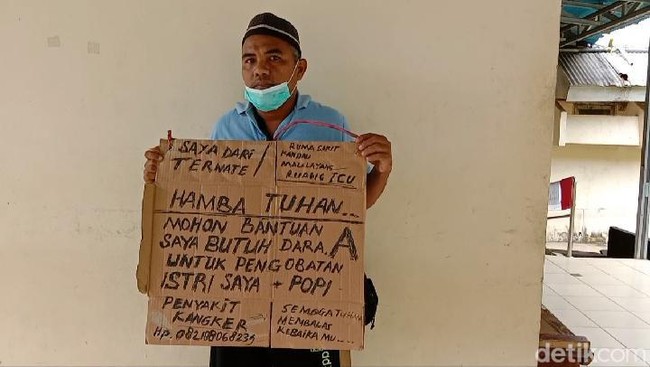 SAYA DARI
TERNATE
RUMA SAKIT
KANDOU
MALALAYANG
RUANG ICU
HAMBA TUHAN...
MOHON BANTUAN
SAYA BUTUH DARA. A
UNTUK PENGOBATAN
ISTRI SAYA + POPI
PENYAKIT
KANGKER
Hp. 082188068234
SEMOGA TUHAN
MEMBALAS
KEBAIKA MU...
detikcom